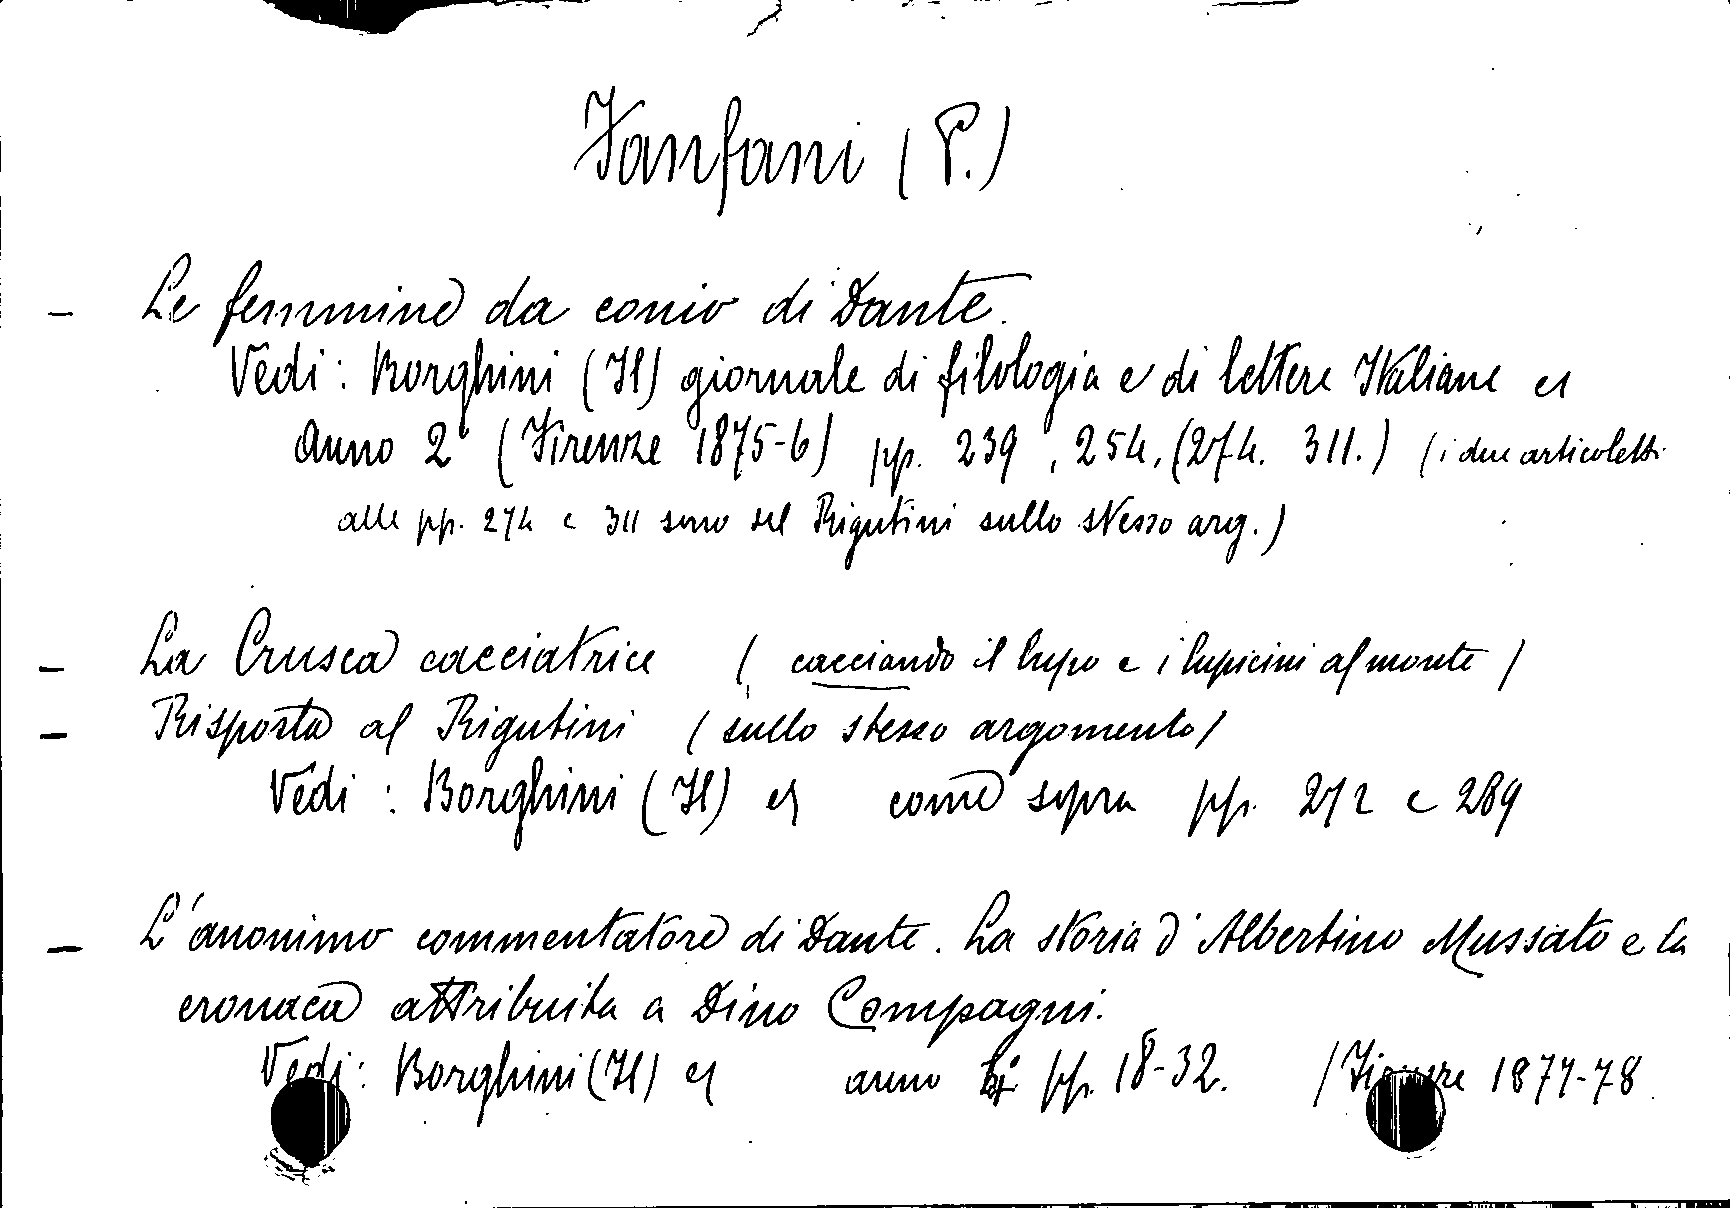 Fanfani (P.)
- Le femmine da conio di Dante.
Vedi: Borghini (Il) giornale di filologia e di lettere Italiane
Anno 2° (Firenze 1875-6) pp. 239, 254, (274. 311.) (i due articoletti
alle pp. 274 e 311 sono del Rigutini sullo stesso arg.)
- La Crusca cacciatrice ( cacciando il lupo e i lupicini al monte )
- Risposta al Rigutini ( sullo stesso argomento )
Vedi : Borghini (Il) come sopra pp. 272 e 289
- L'anonimo commentatore di Dante. La storia d'Albertino Mussato e la
cronaca attribuita a Dino Compagni.
Vedi: Borghini (Il) anno pp. 18-32. (Firenze 1877-78